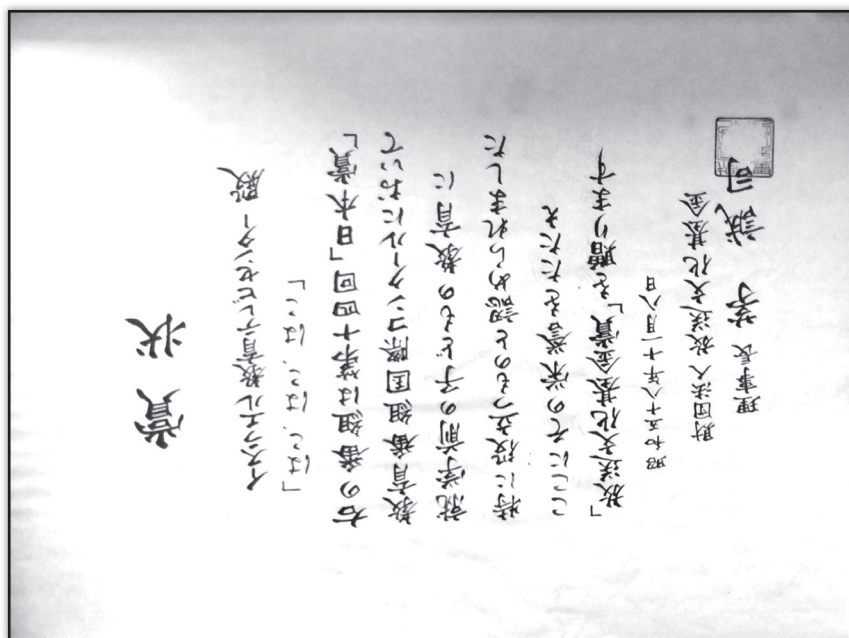 賞状
イスラエル教育テレビセンター殿
「はこ、はこ、はこ」
右の番組は第十四回「日本賞」
教育番組国際コンクールにおいて
就学前の子どもの教育に
特に役立つものと認められました
ここにその栄誉をたたえ
「放送文化基金賞」を贈ります
昭和五十八年十一月八日
財団法人放送文化基金
理事長 茅 誠司